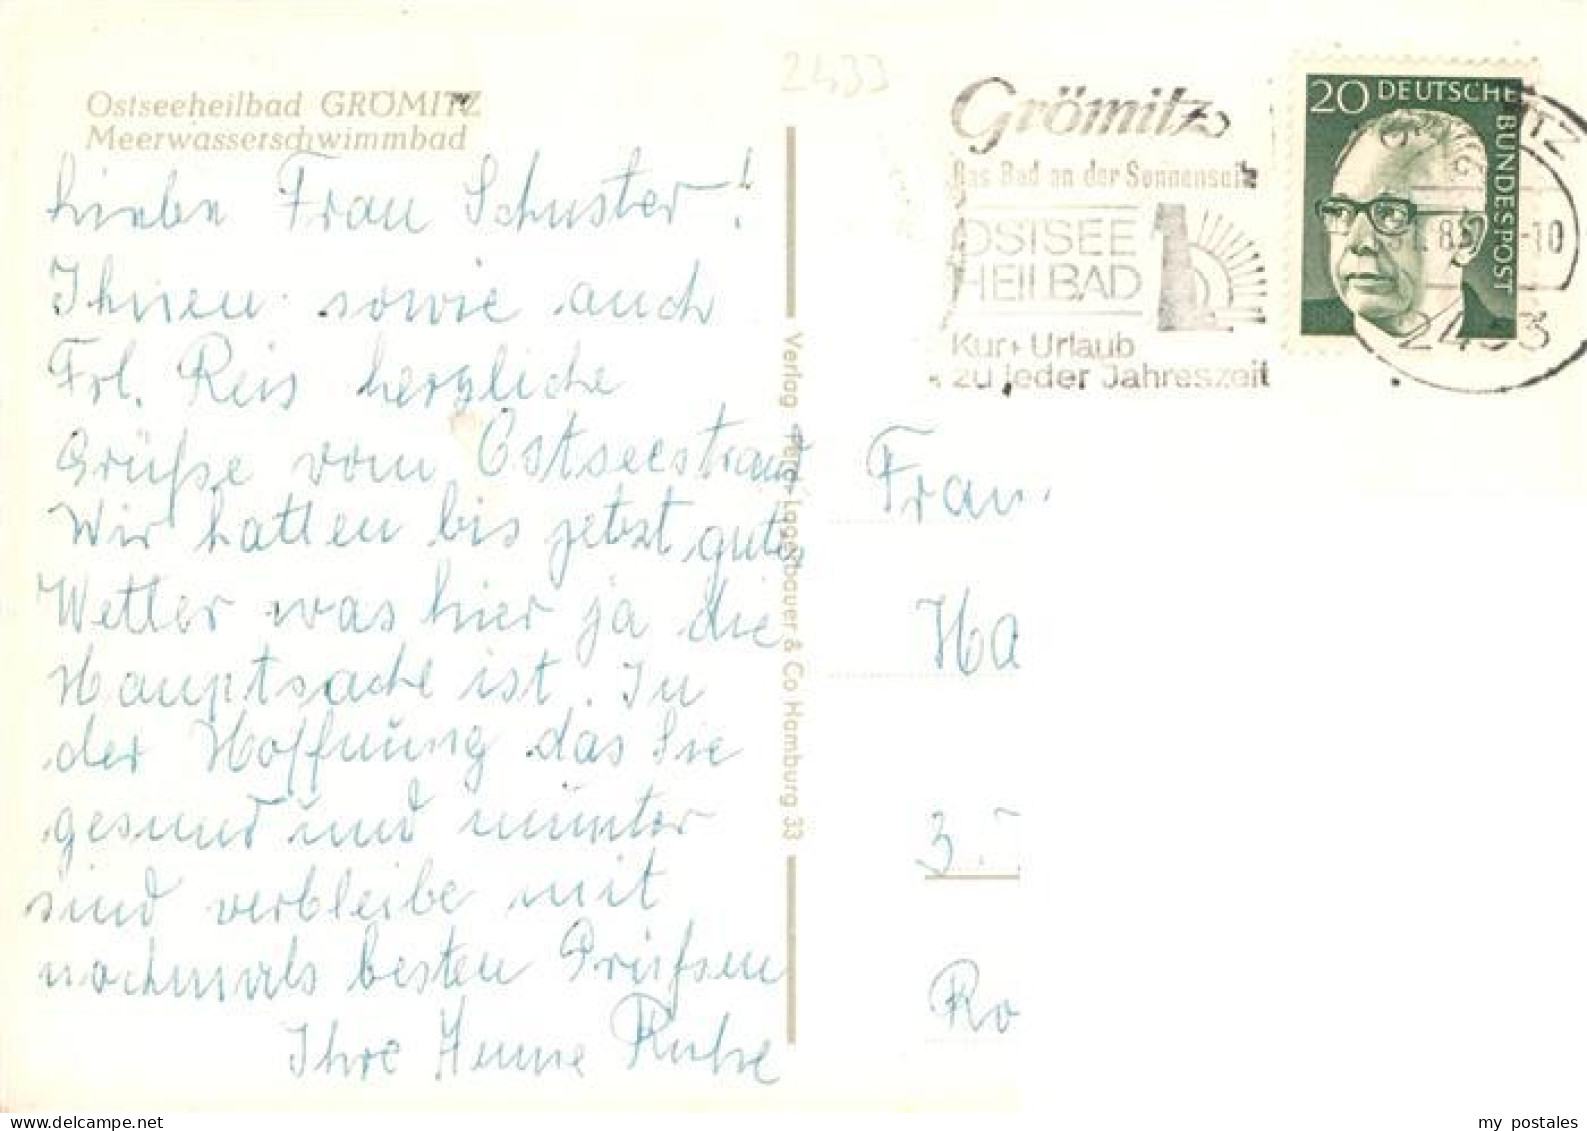 Ostseeheilbad GRÖMITZ
Meerwasserschwimmbad
Liebe Frau Schuster!
Ihnen sowie auch
Frl. Reis herzliche
Grüße vom Ostseestrand
Wir hatten bis jetzt gutes
Wetter was hier ja die
Hauptsache ist. In
der Hoffnung das Sie
gesund und munter
sind verbleibe mit
nochmals besten Grüßsen
Ihre Ruhe
Verlag Peter Lagerbauer & Co Hamburg 33
2433
Grömitz
Das Bad an der Sonnenseite
OSTSEE
HEILBAD
Kur + Urlaub
zu jeder Jahreszeit
20 DEUTSCHE
BUNDESPOST
2433
Frau
Ha
3.
Ro
my postales